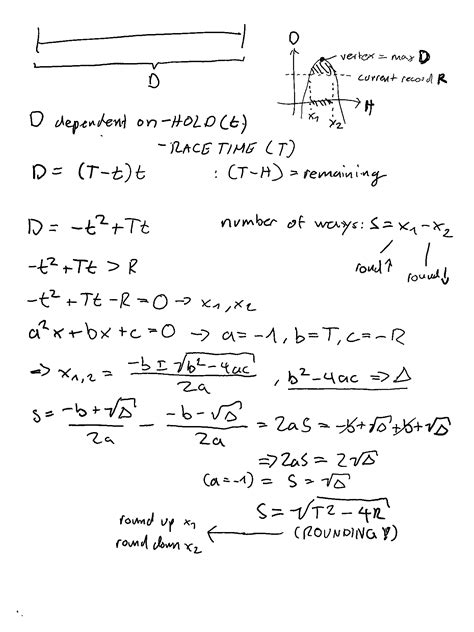 D
vertex = max D
current record R
H
x₁ x₂
D
D dependent on - HOLD (t)
- RACE TIME (T)
D = (T-t)t : (T-H) = remaining
D = -t² + Tt number of ways: S = x₁ - x₂
round ↑ round ↓
-t² + Tt > R
-t² + Tt - R = 0 → x₁, x₂
a²x + bx + c = 0 → a = -1, b = T, c = -R
=> x₁,₂ = (-b ± √(b² - 4ac)) / 2a , b² - 4ac => Δ
S = (-b + √Δ) / 2a - (-b - √Δ) / 2a = 2aS = -b + √Δ + b + √Δ
=> 2aS = 2√Δ
(a = -1) = S = √Δ
S = √(T² - 4R)
round up x₁ ← (ROUNDING!)
round down x₂